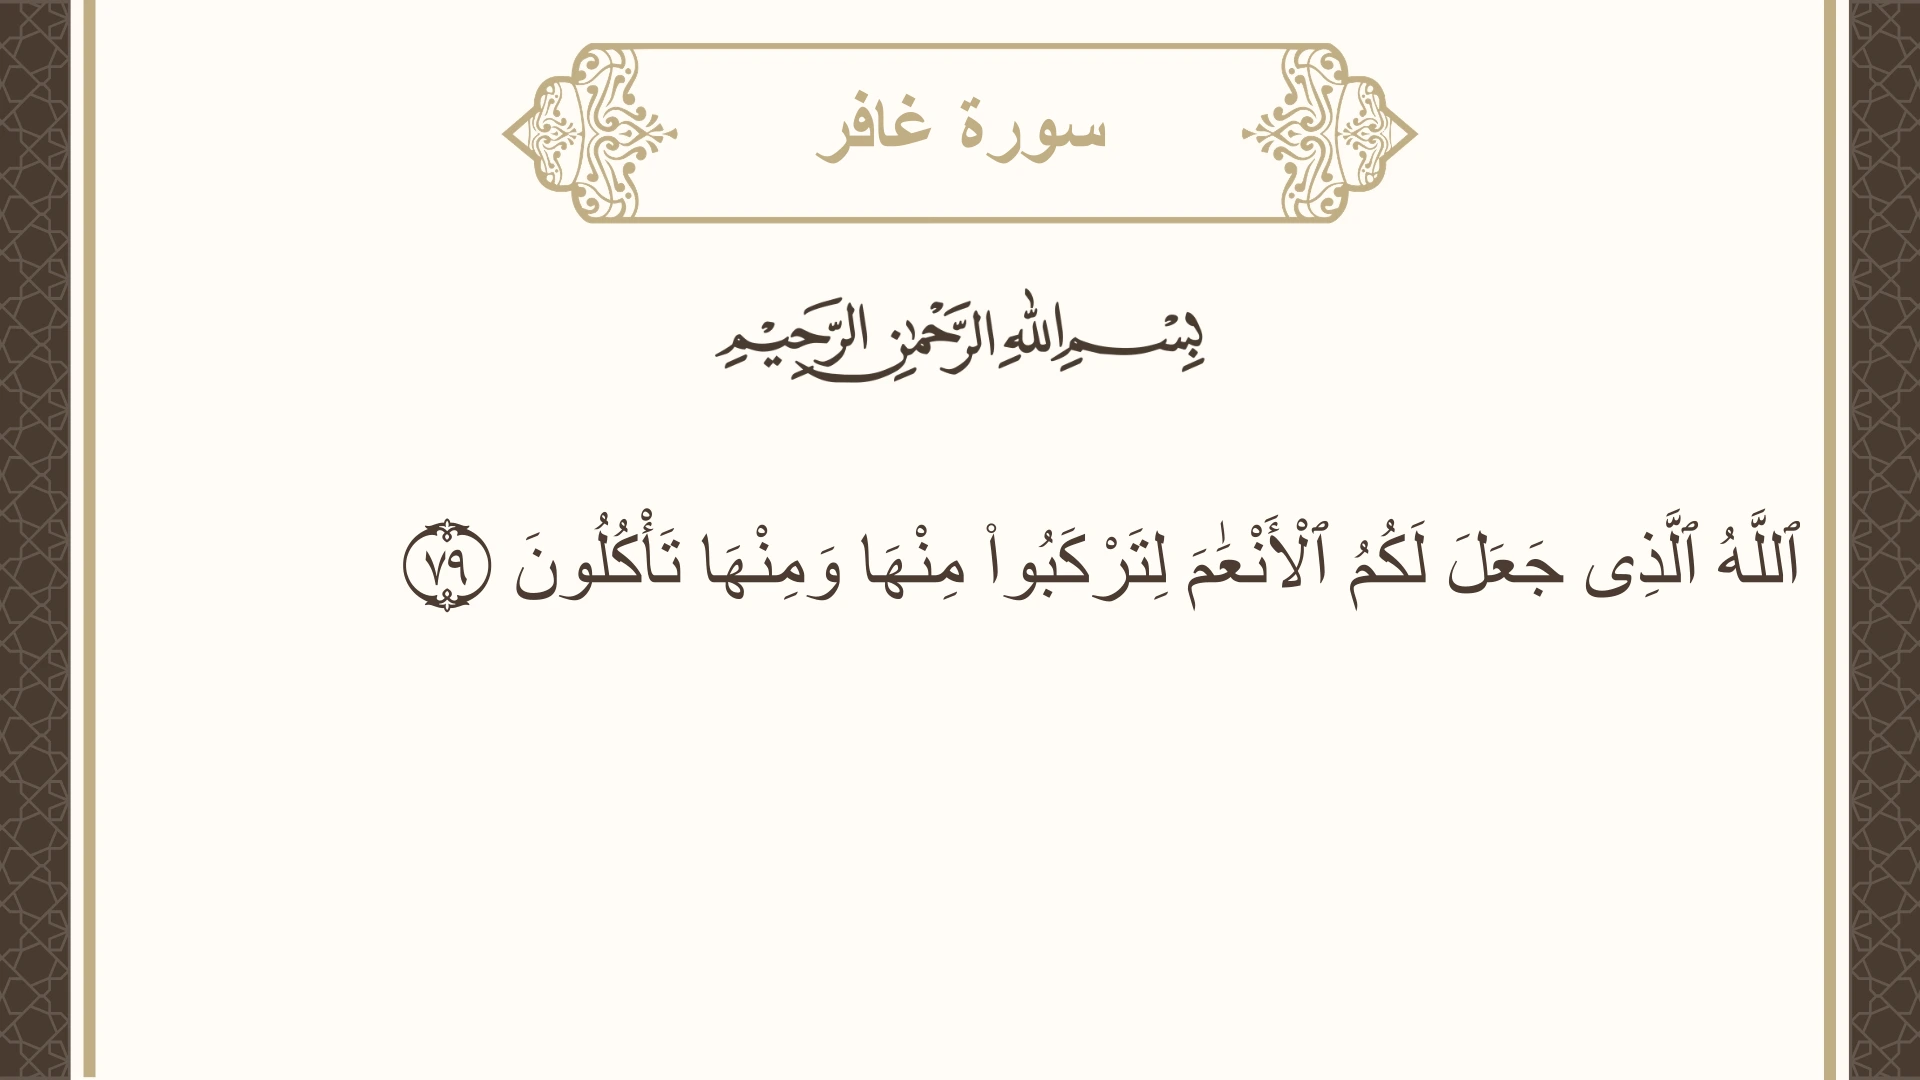 سورة غافر
بِسْمِ اللهِ الرَّحْمٰنِ الرَّحِيْمِ
ٱللَّهُ ٱلَّذِى جَعَلَ لَكُمُ ٱلْأَنْعَٰمَ لِتَرْكَبُوا۟ مِنْهَا وَمِنْهَا تَأْكُلُونَ ٧٩